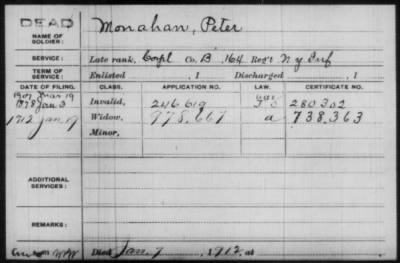 DEAD
NAME OF SOLDIER: Monahan, Peter
SERVICE: Late rank, Corpl Co. B, 164 Reg't N.Y. Inf
TERM OF SERVICE: Enlisted , 1 Discharged , 1
DATE OF FILING. CLASS. APPLICATION NO. LAW. CERTIFICATE NO.
1907 Mar 19
1878 Jan 3 Invalid, 246.619 280302
1912 Jan 9 Widow, 978.667 a 738.363
Minor,
ADDITIONAL SERVICES:
REMARKS:
Died Jan. 7, 1912, at